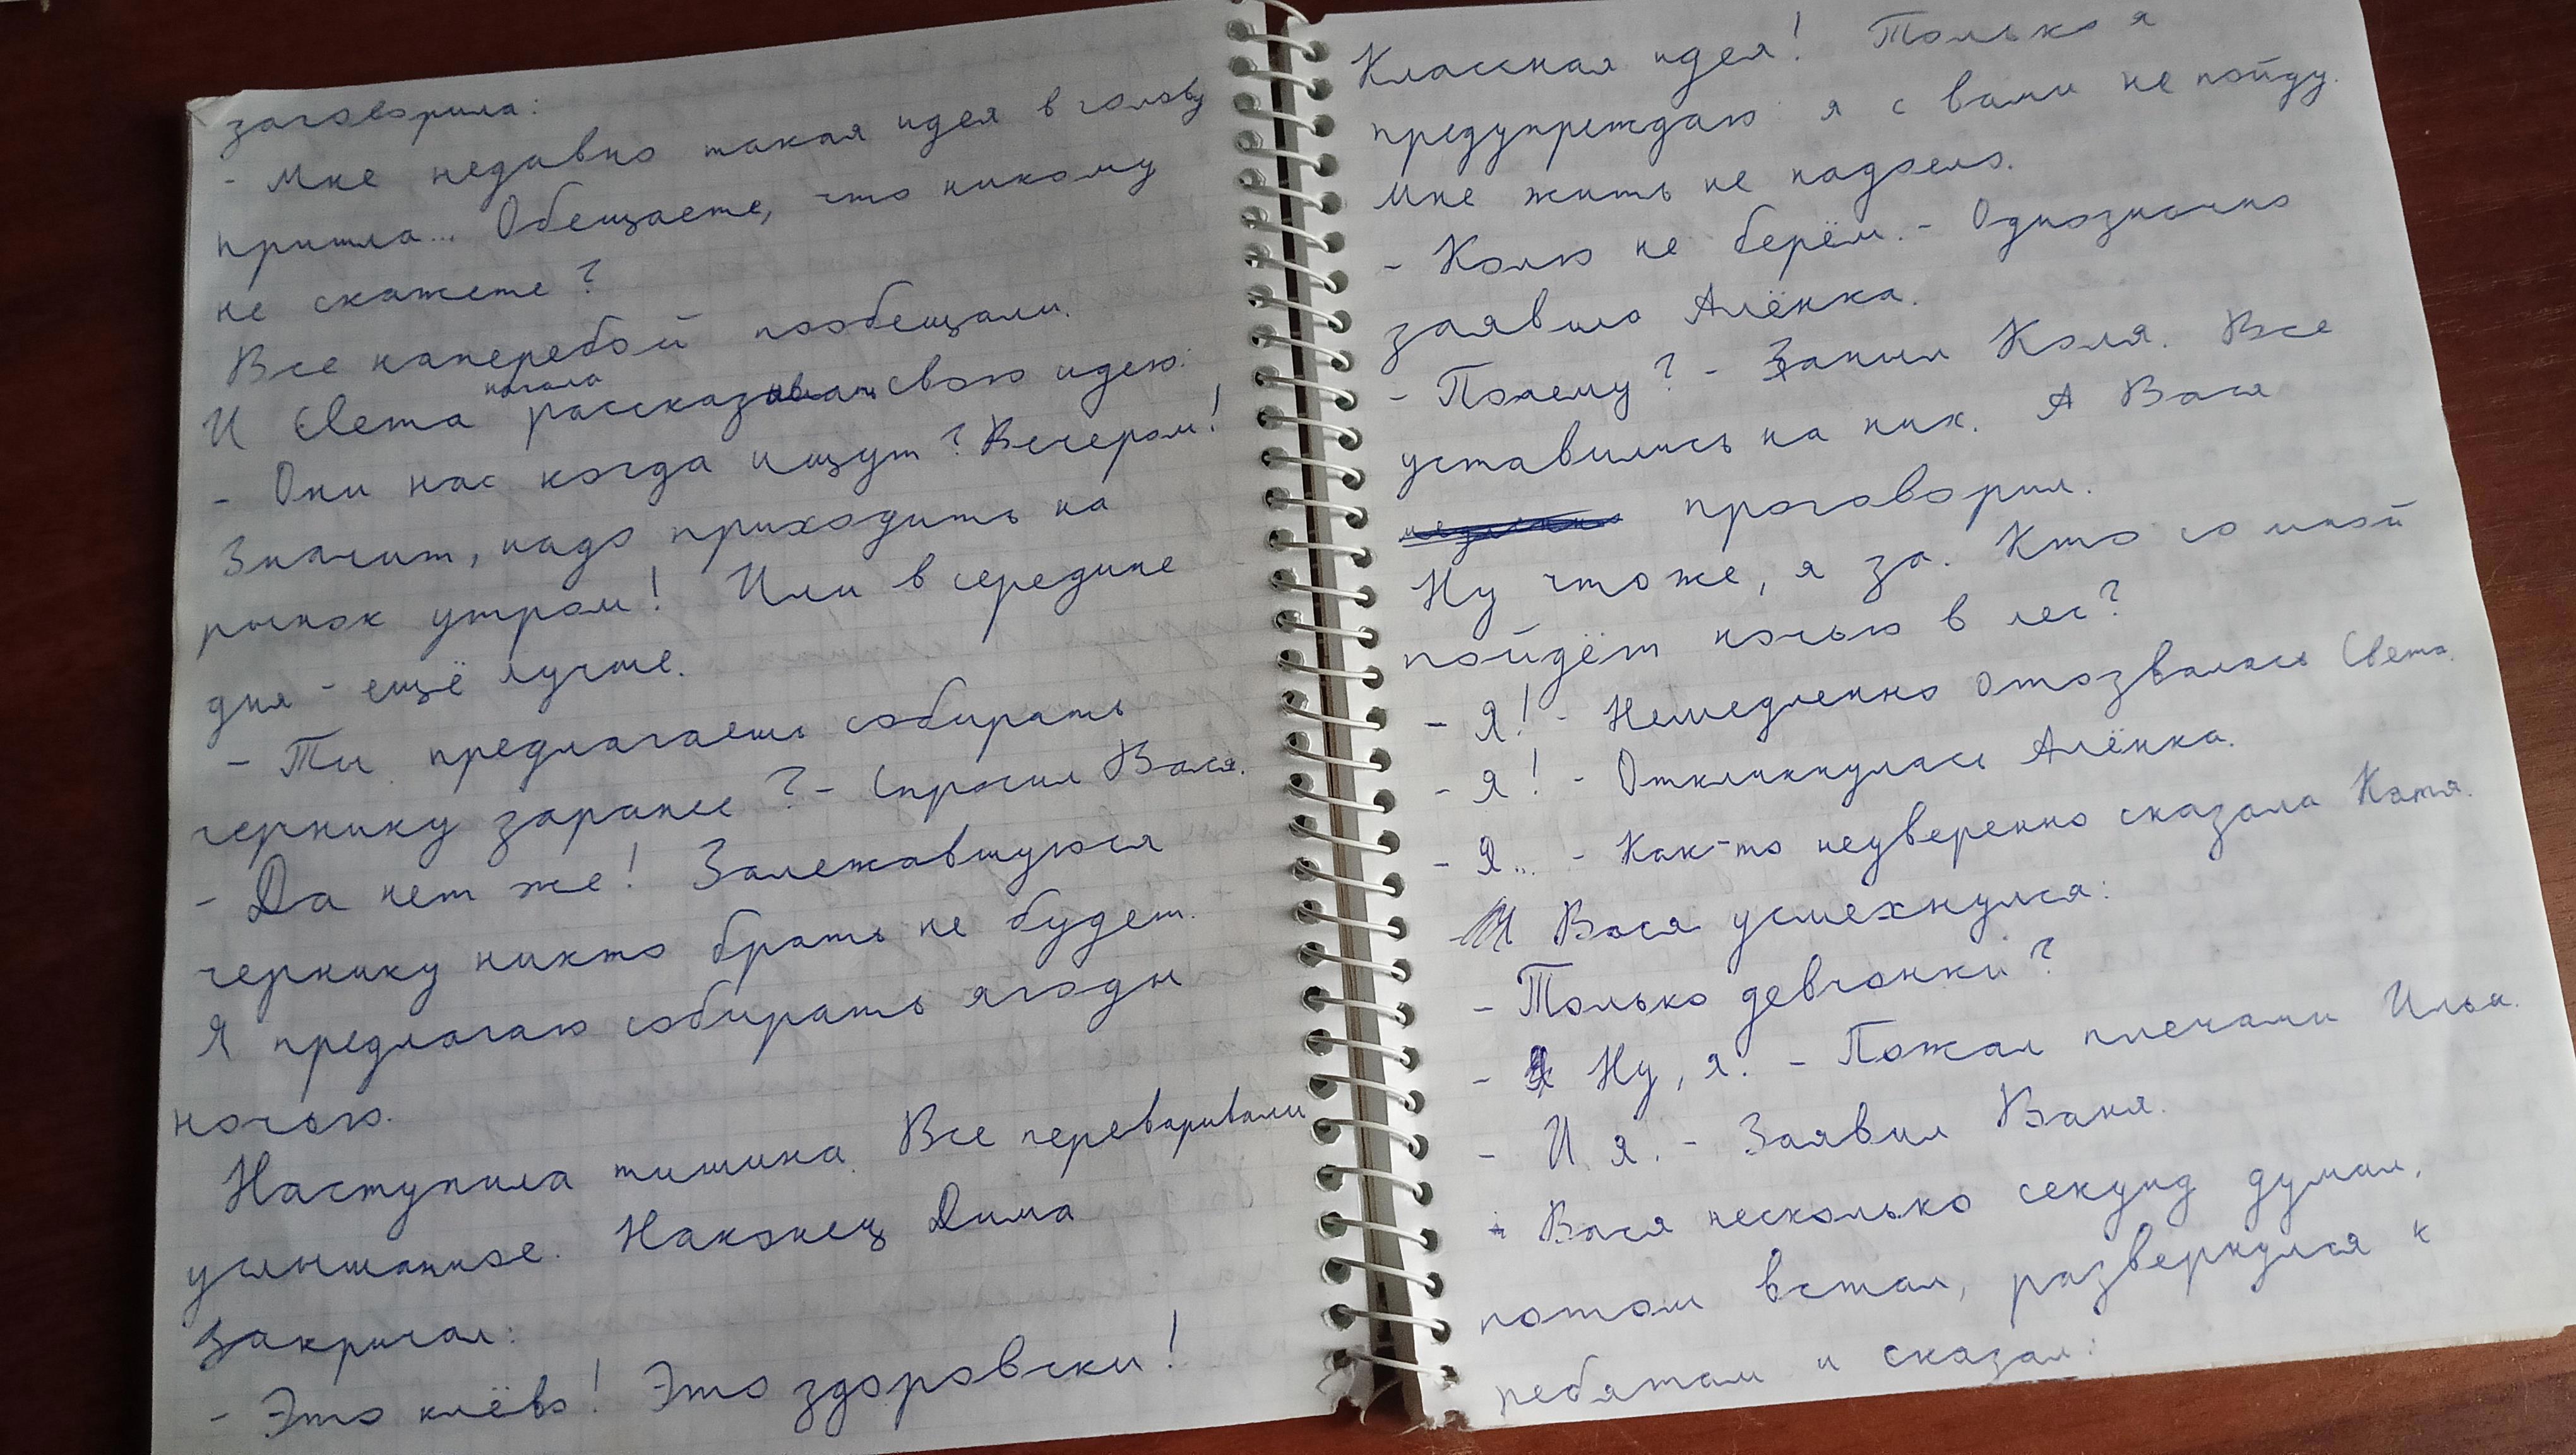 заговорила:
- Мне недавно такая идея в голову
пришла... Обещаете, что никому
не скажете?
Все наперебой пообещали.
И Света начала рассказывать свою идею:
- Они нас когда ищут? Вечером!
Значит, надо приходить на
рынок утром! Или в середине
дня - ещё лучше.
- Ты предлагаешь собирать
чернику заранее? - Спросил Вася.
- Да нет же! Залежавшуюся
чернику никто брать не будет.
Я предлагаю собирать ягоды
ночью.
Наступила тишина. Все переваривали
услышанное. Наконец Дима
закричал:
- Это клёво! Это здоровски!
Классная идея! Только я
предупреждаю я с вами не пойду.
Мне жить не надоело.
- Колю не берём. - Однозначно
заявила Алёнка.
- Почему? - Заныл Коля. Все
уставились на них. А Вася
проговорил.
Ну что же, я за. Кто со мной
пойдём ночью в лес?
- Я! - Немедленно отозвалась Света.
- Я! - Откликнулась Алёнка.
- Я... - Как-то неуверенно сказала Катя.
Вася усмехнулся:
- Только девчонки?
- Ну, я. - Пожал плечами Илья.
- И я. - Заявил Ваня.
Вася несколько секунд думал,
потом встал, развернулся к
ребятам и сказал: